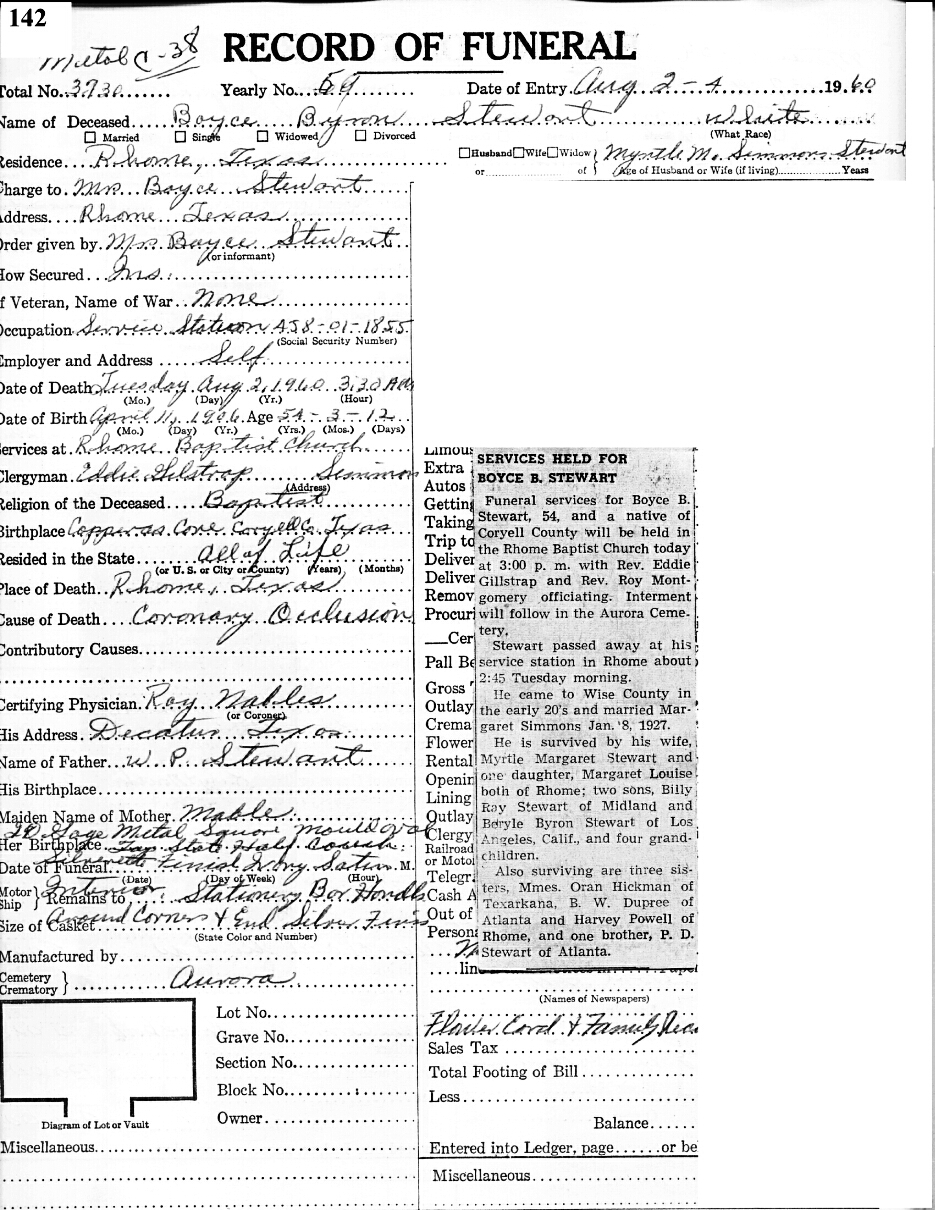 142
Metal C-38
RECORD OF FUNERAL
Total No. 3730 Yearly No. 69 Date of Entry Aug 2-4 1960
Name of Deceased Boyce Byron Stewart White
Married Single Widowed Divorced (What Race)
Residence Rhome, Texas Husband Wife Widow Myrtle M. Simmons Stewart
or of Age of Husband or Wife (if living) Years
Charge to Mrs. Boyce Stewart
Address Rhome Texas
Order given by Mrs Boyce Stewart
(or informant)
How Secured Ins.
If Veteran, Name of War None
Occupation Service Station 458-01-1855
(Social Security Number)
Employer and Address Self
Date of Death Tuesday Aug 2, 1960 3:30 AM
(Mo.) (Day) (Yr.) (Hour)
Date of Birth April 11, 1906 Age 54-3-12
(Mo.) (Day) (Yr.) (Yrs.) (Mos.) (Days)
Services at Rhome Baptist Church
Clergyman Eddie Gilstrap Simmons
(Address)
Religion of the Deceased Baptist
Birthplace Copperas Cove Coryell Co. Texas
Resided in the State All of Life
(or U. S. or City or County) (Years) (Months)
Place of Death Rhome, Texas
Cause of Death Coronary Occlusion
Contributory Causes
Certifying Physician Roy Nables
(or Coroner)
His Address Decatur Texas
Name of Father W. P. Stewart
His Birthplace
Maiden Name of Mother Mable
20 Gage Metal Square mould oval
Her Birthplace
Date of Funeral Silverette Finish Ivory Satin M.
(Date) (Day of Week) (Hour)
Motor Ship Remains to Interior Stationery Bar Handls
Size of Casket Around Corners & End Silver Finis
(State Color and Number)
Manufactured by
Cemetery Crematory Aurora
Lot No.
Grave No.
Section No.
Block No.
Owner
Diagram of Lot or Vault
Miscellaneous
Limous
Extra
Autos
Getting
Taking
Trip to
Deliver
Deliver
Remov
Procuri
Cer
Pall Be
Gross
Outlay
Crema
Flower
Rental
Openin
Lining
Outlay
Clergy
Railroad
or Motor
Telegr
Cash A
Out of
Person
lin
SERVICES HELD FOR
BOYCE B. STEWART
Funeral services for Boyce B.
Stewart, 54, and a native of
Coryell County will be held in
the Rhome Baptist Church today
at 3:00 p. m. with Rev. Eddie
Gillstrap and Rev. Roy Mont-
gomery officiating. Interment
will follow in the Aurora Ceme-
tery.
Stewart passed away at his
service station in Rhome about
2:45 Tuesday morning.
He came to Wise County in
the early 20's and married Mar-
garet Simmons Jan. 8, 1927.
He is survived by his wife,
Myrtle Margaret Stewart and
one daughter, Margaret Louise
both of Rhome; two sons, Billy
Ray Stewart of Midland and
Beryle Byron Stewart of Los
Angeles, Calif., and four grand-
children.
Also surviving are three sis-
ters, Mmes. Oran Hickman of
Texarkana, B. W. Dupree of
Atlanta and Harvey Powell of
Rhome, and one brother, P. D.
Stewart of Atlanta.
(Names of Newspapers)
Flower Card & Family Rec
Sales Tax
Total Footing of Bill
Less
Balance
Entered into Ledger, page or be
Miscellaneous